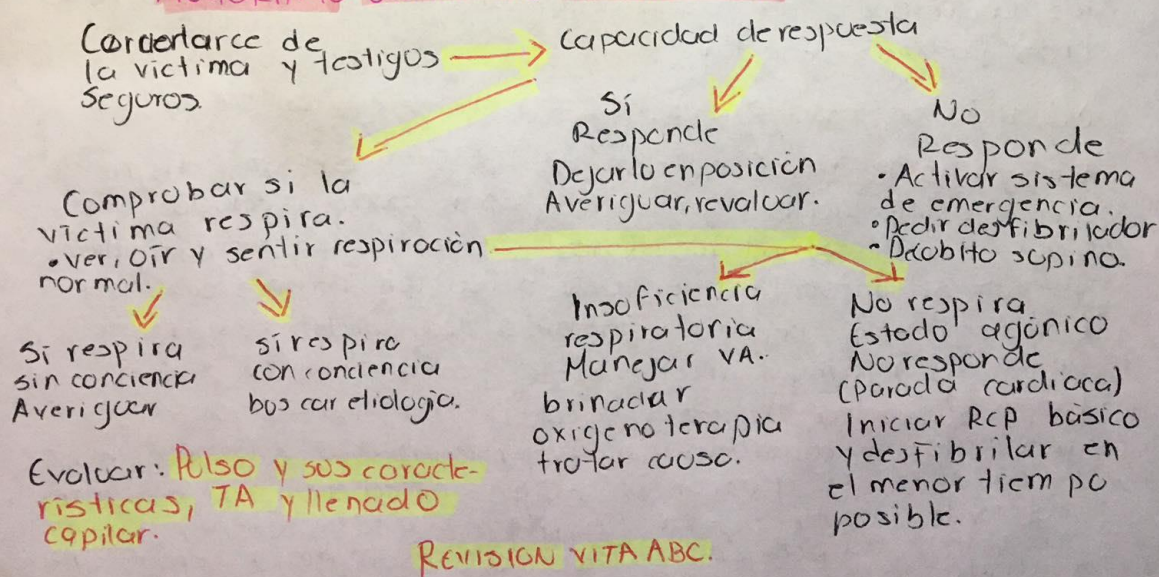 Corcerlarce de
la victima y testigos
seguros.
capacidad de respuesta
Sí
Responde
Dejarlo en posición
Averiguar, revaluar.
No
Responde
• Activar sistema
de emergencia.
• Pedir desfibrilador
• Dcobito supino.
Comprobar si la
víctima respira.
• ver, oír y sentir respiración
normal.
Si respira
sin conciencia
Averiguar
sí respira
con conciencia
buscar etiologia.
Insuficiencia
respiratoria
Manejar VA.
brinadar
oxigenoterapia
tratar causa.
No respira
Estado agónico
No responde
(parada cardiaca)
Iniciar RCP básico
y desfibrilar en
el menor tiempo
posible.
Evaluar: Pulso y sus caracte-
rísticas, TA y llenado
capilar.
REVISION VITA ABC.